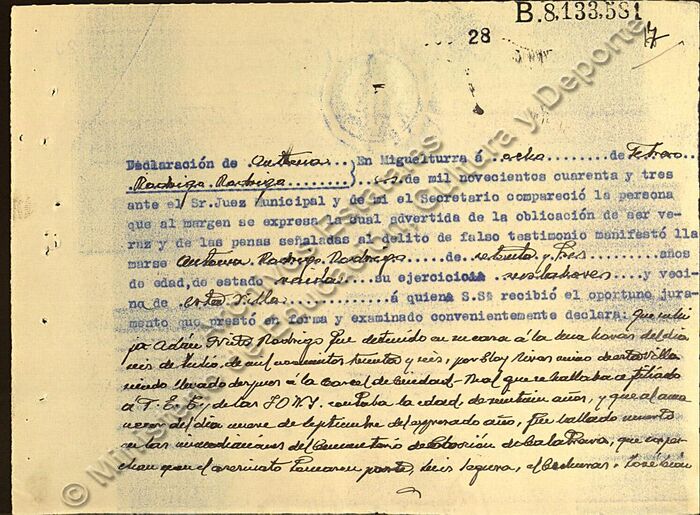 B.8,133,581
28
17
Declaración de Antonia En Miguelturra á ocho de Febrero
Rodrigo Rodrigo de mil novecientos cuarenta y tres
ante el Sr. Juez Municipal y de mi el Secretario compareció la persona
que al margen se expresa la cual advertida de la oblicación de ser ve-
raz y de las penas señaladas al delito de falso testimonio manifestó lla
marse Antonia Rodrigo Rodrigo de setenta y tres años
de edad, de estado viuda su ejercicio sus labores y veci-
na de esta Villa á quien S.Sª recibió el oportuno jura-
mento que prestó en forma y examinado convenientemente declara: que su hi-
jo Adán Prats Rodrigo fue detenido en su casa á la una horas del dia
seis de Julio de mil novecientos treinta y seis, por Eloy Rivas vecino de esta villa
siendo llevado despues á la Carcel de Ciudad-Real que se hallaba afiliado
á F.E.T. y de las J.O.N.S. contaba la edad de años, y que al ama
necer del dia nueve de Septiembre del expresado año, fue hallado muerto
en las inmediaciones del Cementerio de Carrión de Calatrava, que
en el asesinato tomaron parte, Luis el José
© Ministerio de Educación, Cultura y Deporte
Archivos Estatales